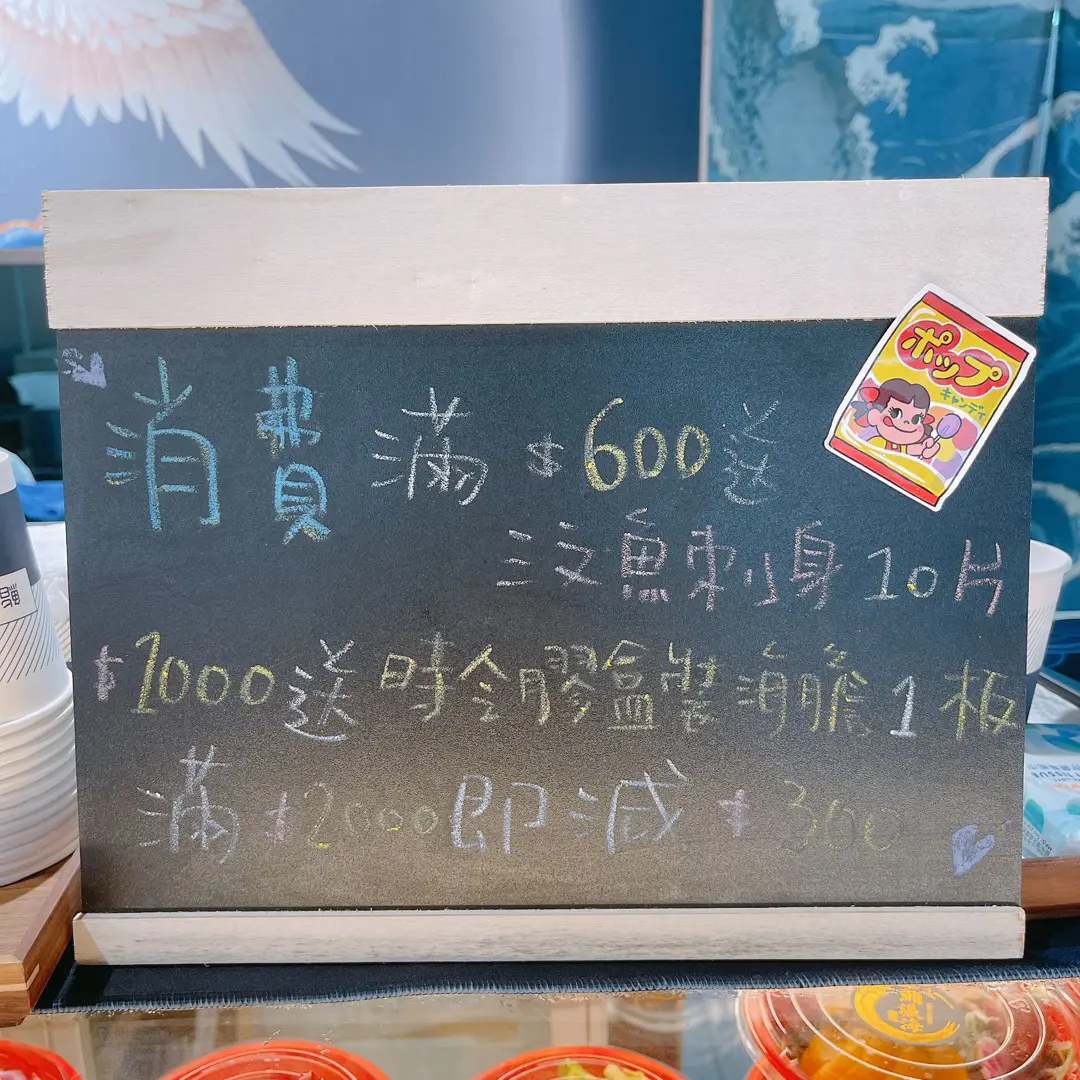 消費滿$600送
三文魚刺身10片
$1000送時令膠盒裝海膽1板
滿$2000即減$300
ポップ
キャンディ